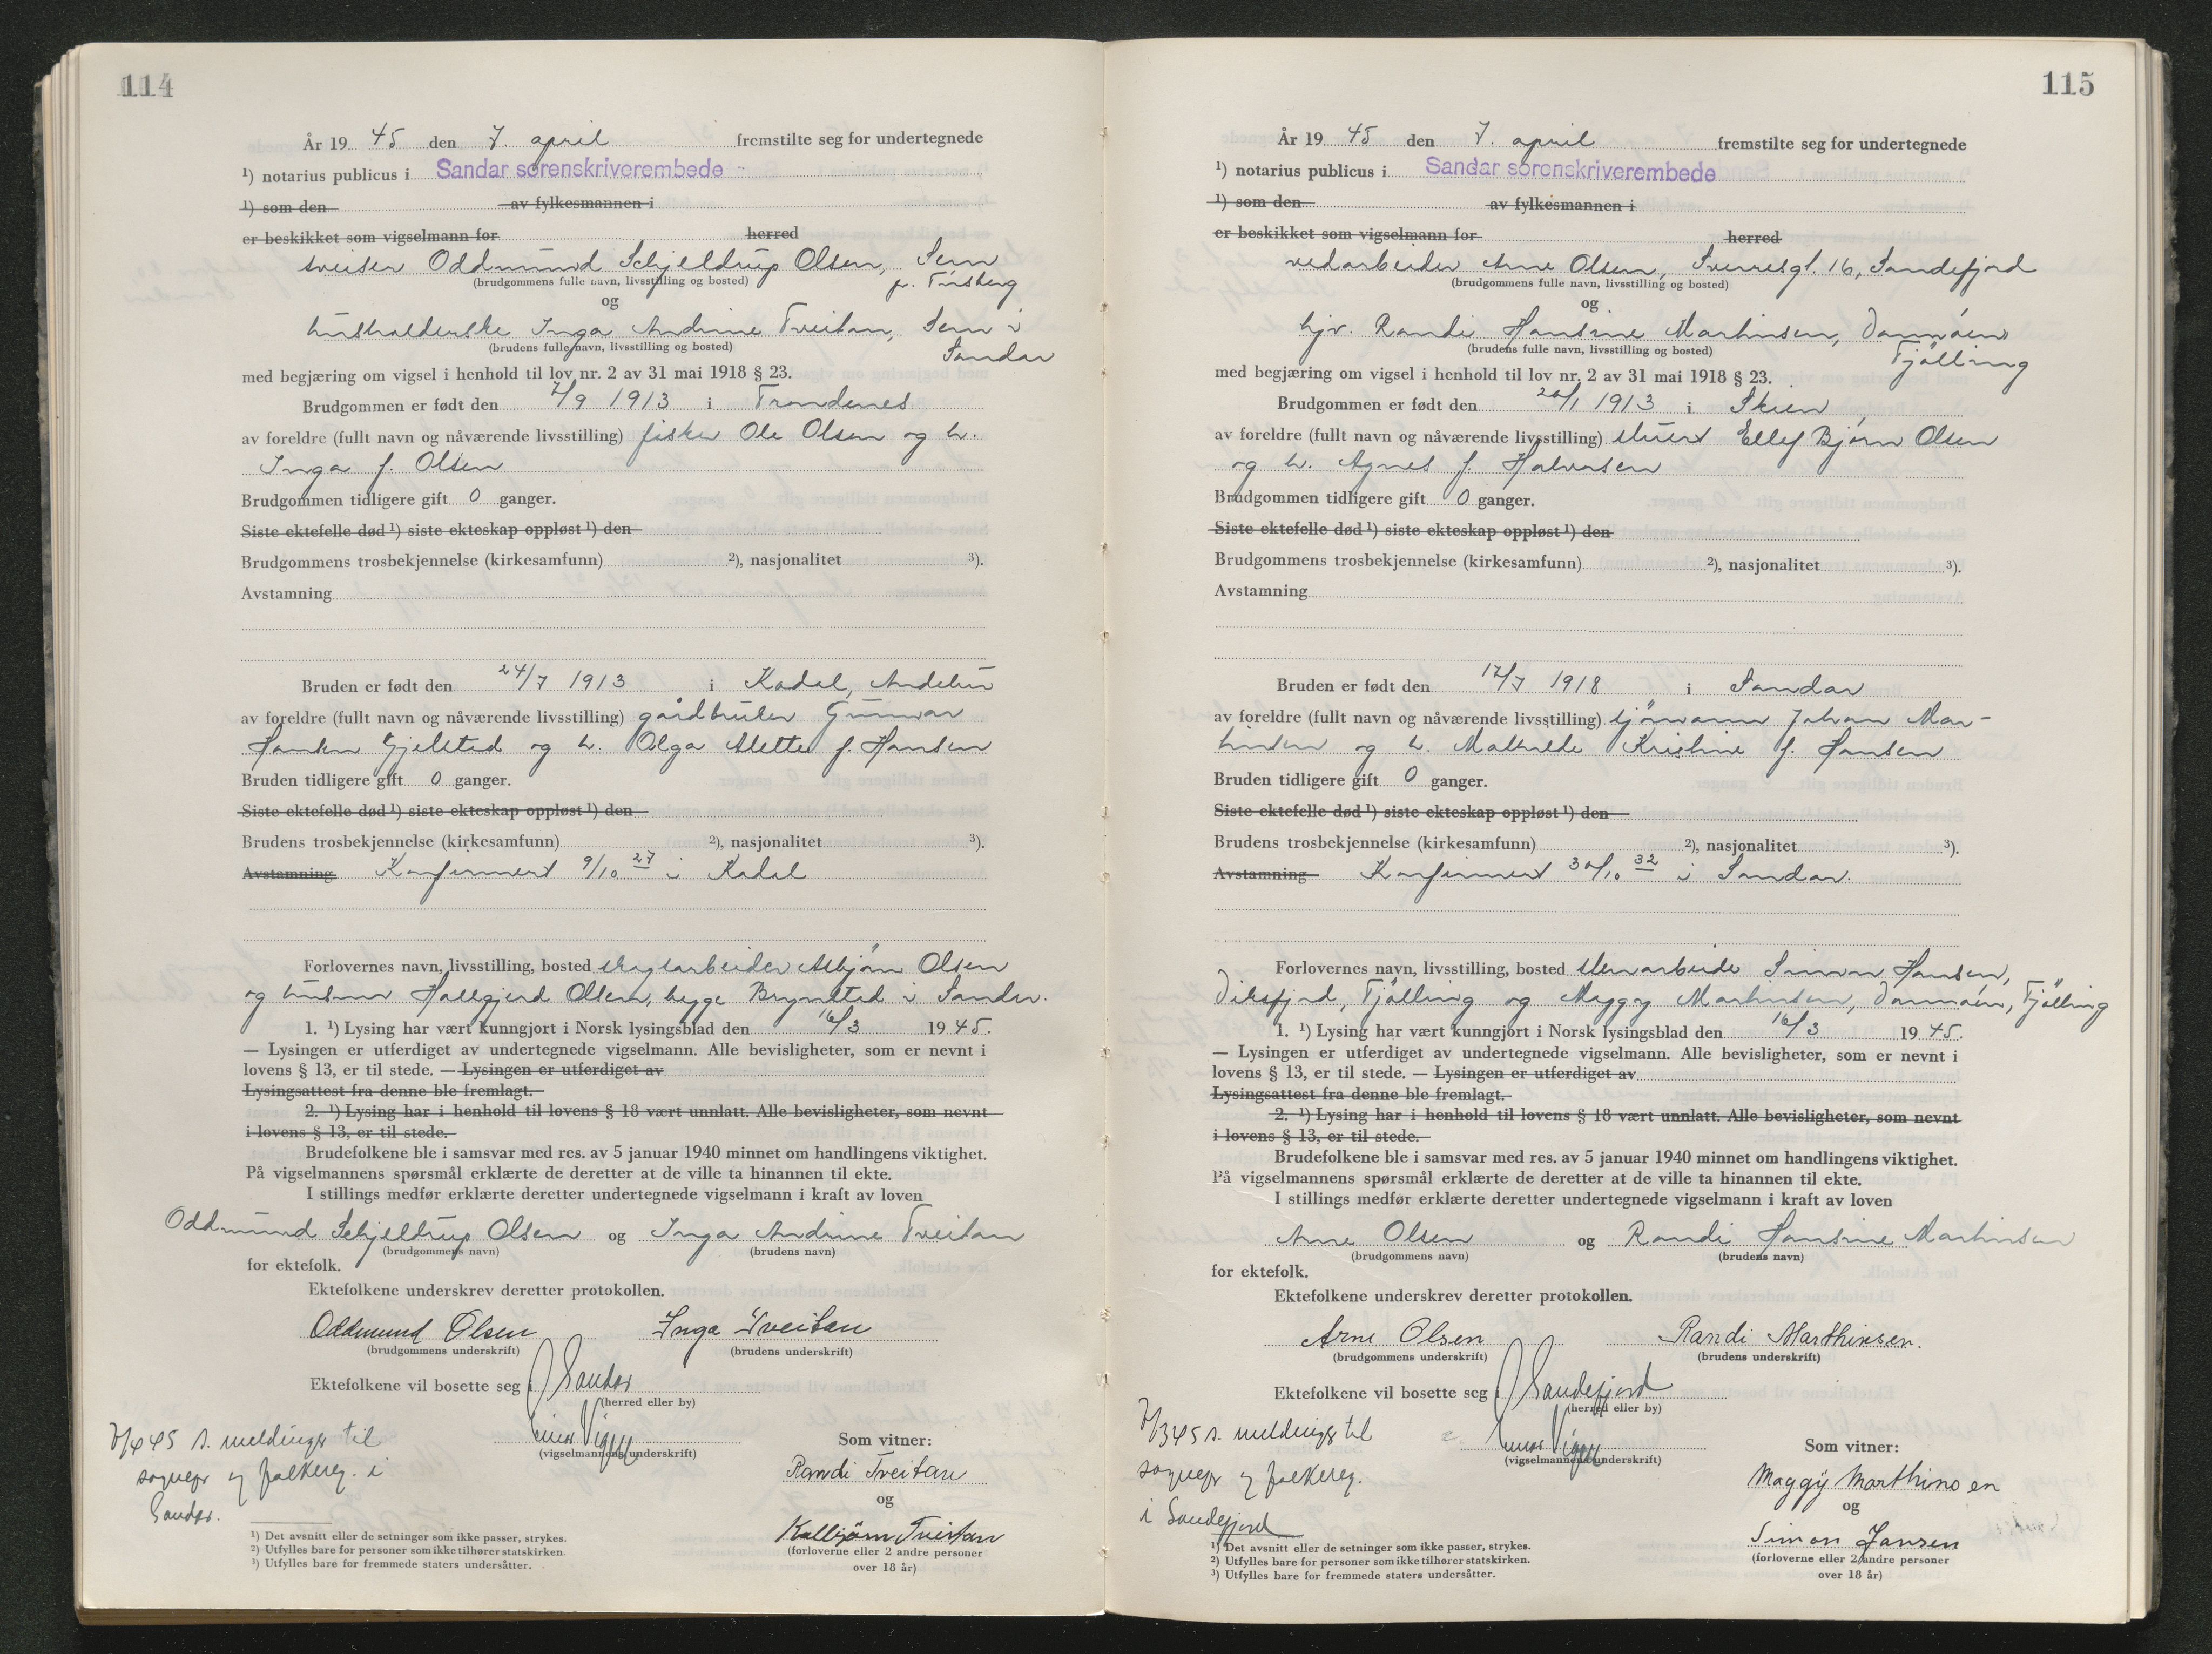 114
År 19 45 den 7. april fremstilte seg for undertegnede
¹) notarius publicus i Sandar sorenskriverembede
¹) som den av fylkesmannen i
er beskikket som vigselmann for herred
sveiser Oddmund Schjeldrup Olsen, Sem
p. Tønsberg
(brudgommens fulle navn, livsstilling og bosted)
og
husholderske Inga Andrine Tveitan, Sem i
Sandar
(brudens fulle navn, livsstilling og bosted)
med begjæring om vigsel i henhold til lov nr. 2 av 31 mai 1918 § 23.
Brudgommen er født den 7/9 1913 i Trondenes
av foreldre (fullt navn og nåværende livsstilling) fisker Ole Olsen og h.
Inga f. Olsen
Brudgommen tidligere gift 0 ganger.
Siste ektefelle død ¹) siste ekteskap oppløst ¹) den
Brudgommens trosbekjennelse (kirkesamfunn) ²), nasjonalitet ³).
Avstamning
Bruden er født den 24/7 1913 i Kodal, Andebu
av foreldre (fullt navn og nåværende livsstilling) gårdbruker Gunnar
Hansen Gjelstad og h. Olga Alette f. Hansen
Bruden tidligere gift 0 ganger.
Siste ektefelle død ¹) siste ekteskap oppløst ¹) den
Brudens trosbekjennelse (kirkesamfunn) ²), nasjonalitet ³).
Avstamning Konfirmert 9/10 27 i Kodal
Forlovernes navn, livsstilling, bosted skogsarbeider Asbjørn Olsen
og hustru Hallgjerd Olsen, begge Brynsted i Sandar.
1. ¹) Lysing har vært kunngjort i Norsk lysingsblad den 16/3 19 45.
— Lysingen er utferdiget av undertegnede vigselmann. Alle bevisligheter, som er nevnt i
lovens § 13, er til stede. — Lysingen er utferdiget av
Lysingsattest fra denne ble fremlagt.
2. ¹) Lysing har i henhold til lovens § 18 vært unnlatt. Alle bevisligheter, som nevnt
i lovens § 13, er til stede.
Brudefolkene ble i samsvar med res. av 5 januar 1940 minnet om handlingens viktighet.
På vigselmannens spørsmål erklærte de deretter at de ville ta hinannen til ekte.
I stillings medfør erklærte deretter undertegnede vigselmann i kraft av loven
Oddmund Schjeldrup Olsen og Inga Andrine Tveitan
(brudgommens navn) (brudens navn)
for ektefolk.
Ektefolkene underskrev deretter protokollen.
Oddmund Olsen Inga Tveitan
(brudgommens underskrift) (brudens underskrift)
Ektefolkene vil bosette seg i Sandar
(herred eller by)
7/4 45 s. meldinger til
sognepr og folkereg. i
Sandar.
(vigselmannens underskrift)
Som vitner:
Randi Tveitan
og
Kallbjørn Tveitan
(forloverne eller 2 andre personer
over 18 år)
¹) Det avsnitt eller de setninger som ikke passer, strykes.
²) Utfylles bare for personer som ikke tilhører statskirken.
³) Utfylles bare for fremmede staters undersåtter.
115
År 19 45 den 7. april fremstilte seg for undertegnede
¹) notarius publicus i Sandar sorenskriverembede
¹) som den av fylkesmannen i
er beskikket som vigselmann for herred
vedarbeider Arne Olsen, Sverresgt. 16, Sandefjord
(brudgommens fulle navn, livsstilling og bosted)
og
hjv. Randi Hansine Marthinsen,
Tjølling
(brudens fulle navn, livsstilling og bosted)
med begjæring om vigsel i henhold til lov nr. 2 av 31 mai 1918 § 23.
Brudgommen er født den 20/1 1913 i Skien
av foreldre (fullt navn og nåværende livsstilling) Ellef Bjørn Olsen
og h. Agnes f. Halvorsen
Brudgommen tidligere gift 0 ganger.
Siste ektefelle død ¹) siste ekteskap oppløst ¹) den
Brudgommens trosbekjennelse (kirkesamfunn) ²), nasjonalitet ³).
Avstamning
Bruden er født den 17/7 1918 i Sandar
av foreldre (fullt navn og nåværende livsstilling) sjømann Johan Mar-
thinsen og h. Mathilde Kristine f. Hansen
Bruden tidligere gift 0 ganger.
Siste ektefelle død ¹) siste ekteskap oppløst ¹) den
Brudens trosbekjennelse (kirkesamfunn) ²), nasjonalitet ³).
Avstamning Konfirmert 30/10 32 i Sandar.
Forlovernes navn, livsstilling, bosted stenarbeider Simon Hansen,
Viksfjord, Tjølling og Maggy Marthinsen, Tjølling
1. ¹) Lysing har vært kunngjort i Norsk lysingsblad den 16/3 19 45.
— Lysingen er utferdiget av undertegnede vigselmann. Alle bevisligheter, som er nevnt i
lovens § 13, er til stede. — Lysingen er utferdiget av
Lysingsattest fra denne ble fremlagt.
2. ¹) Lysing har i henhold til lovens § 18 vært unnlatt. Alle bevisligheter, som nevnt
i lovens § 13, er til stede.
Brudefolkene ble i samsvar med res. av 5 januar 1940 minnet om handlingens viktighet.
På vigselmannens spørsmål erklærte de deretter at de ville ta hinannen til ekte.
I stillings medfør erklærte deretter undertegnede vigselmann i kraft av loven
Arne Olsen og Randi Hansine Marthinsen
(brudgommens navn) (brudens navn)
for ektefolk.
Ektefolkene underskrev deretter protokollen.
Arne Olsen Randi Marthinsen.
(brudgommens underskrift) (brudens underskrift)
Ektefolkene vil bosette seg i Sandefjord
(herred eller by)
s. meldinger til
sognepr og folkereg.
i Sandefjord
(vigselmannens underskrift)
Som vitner:
Maggy Marthinsen
og
Simon Hansen
(forloverne eller 2 andre personer
over 18 år)
¹) Det avsnitt eller de setninger som ikke passer, strykes.
²) Utfylles bare for personer som ikke tilhører statskirken.
³) Utfylles bare for fremmede staters undersåtter.